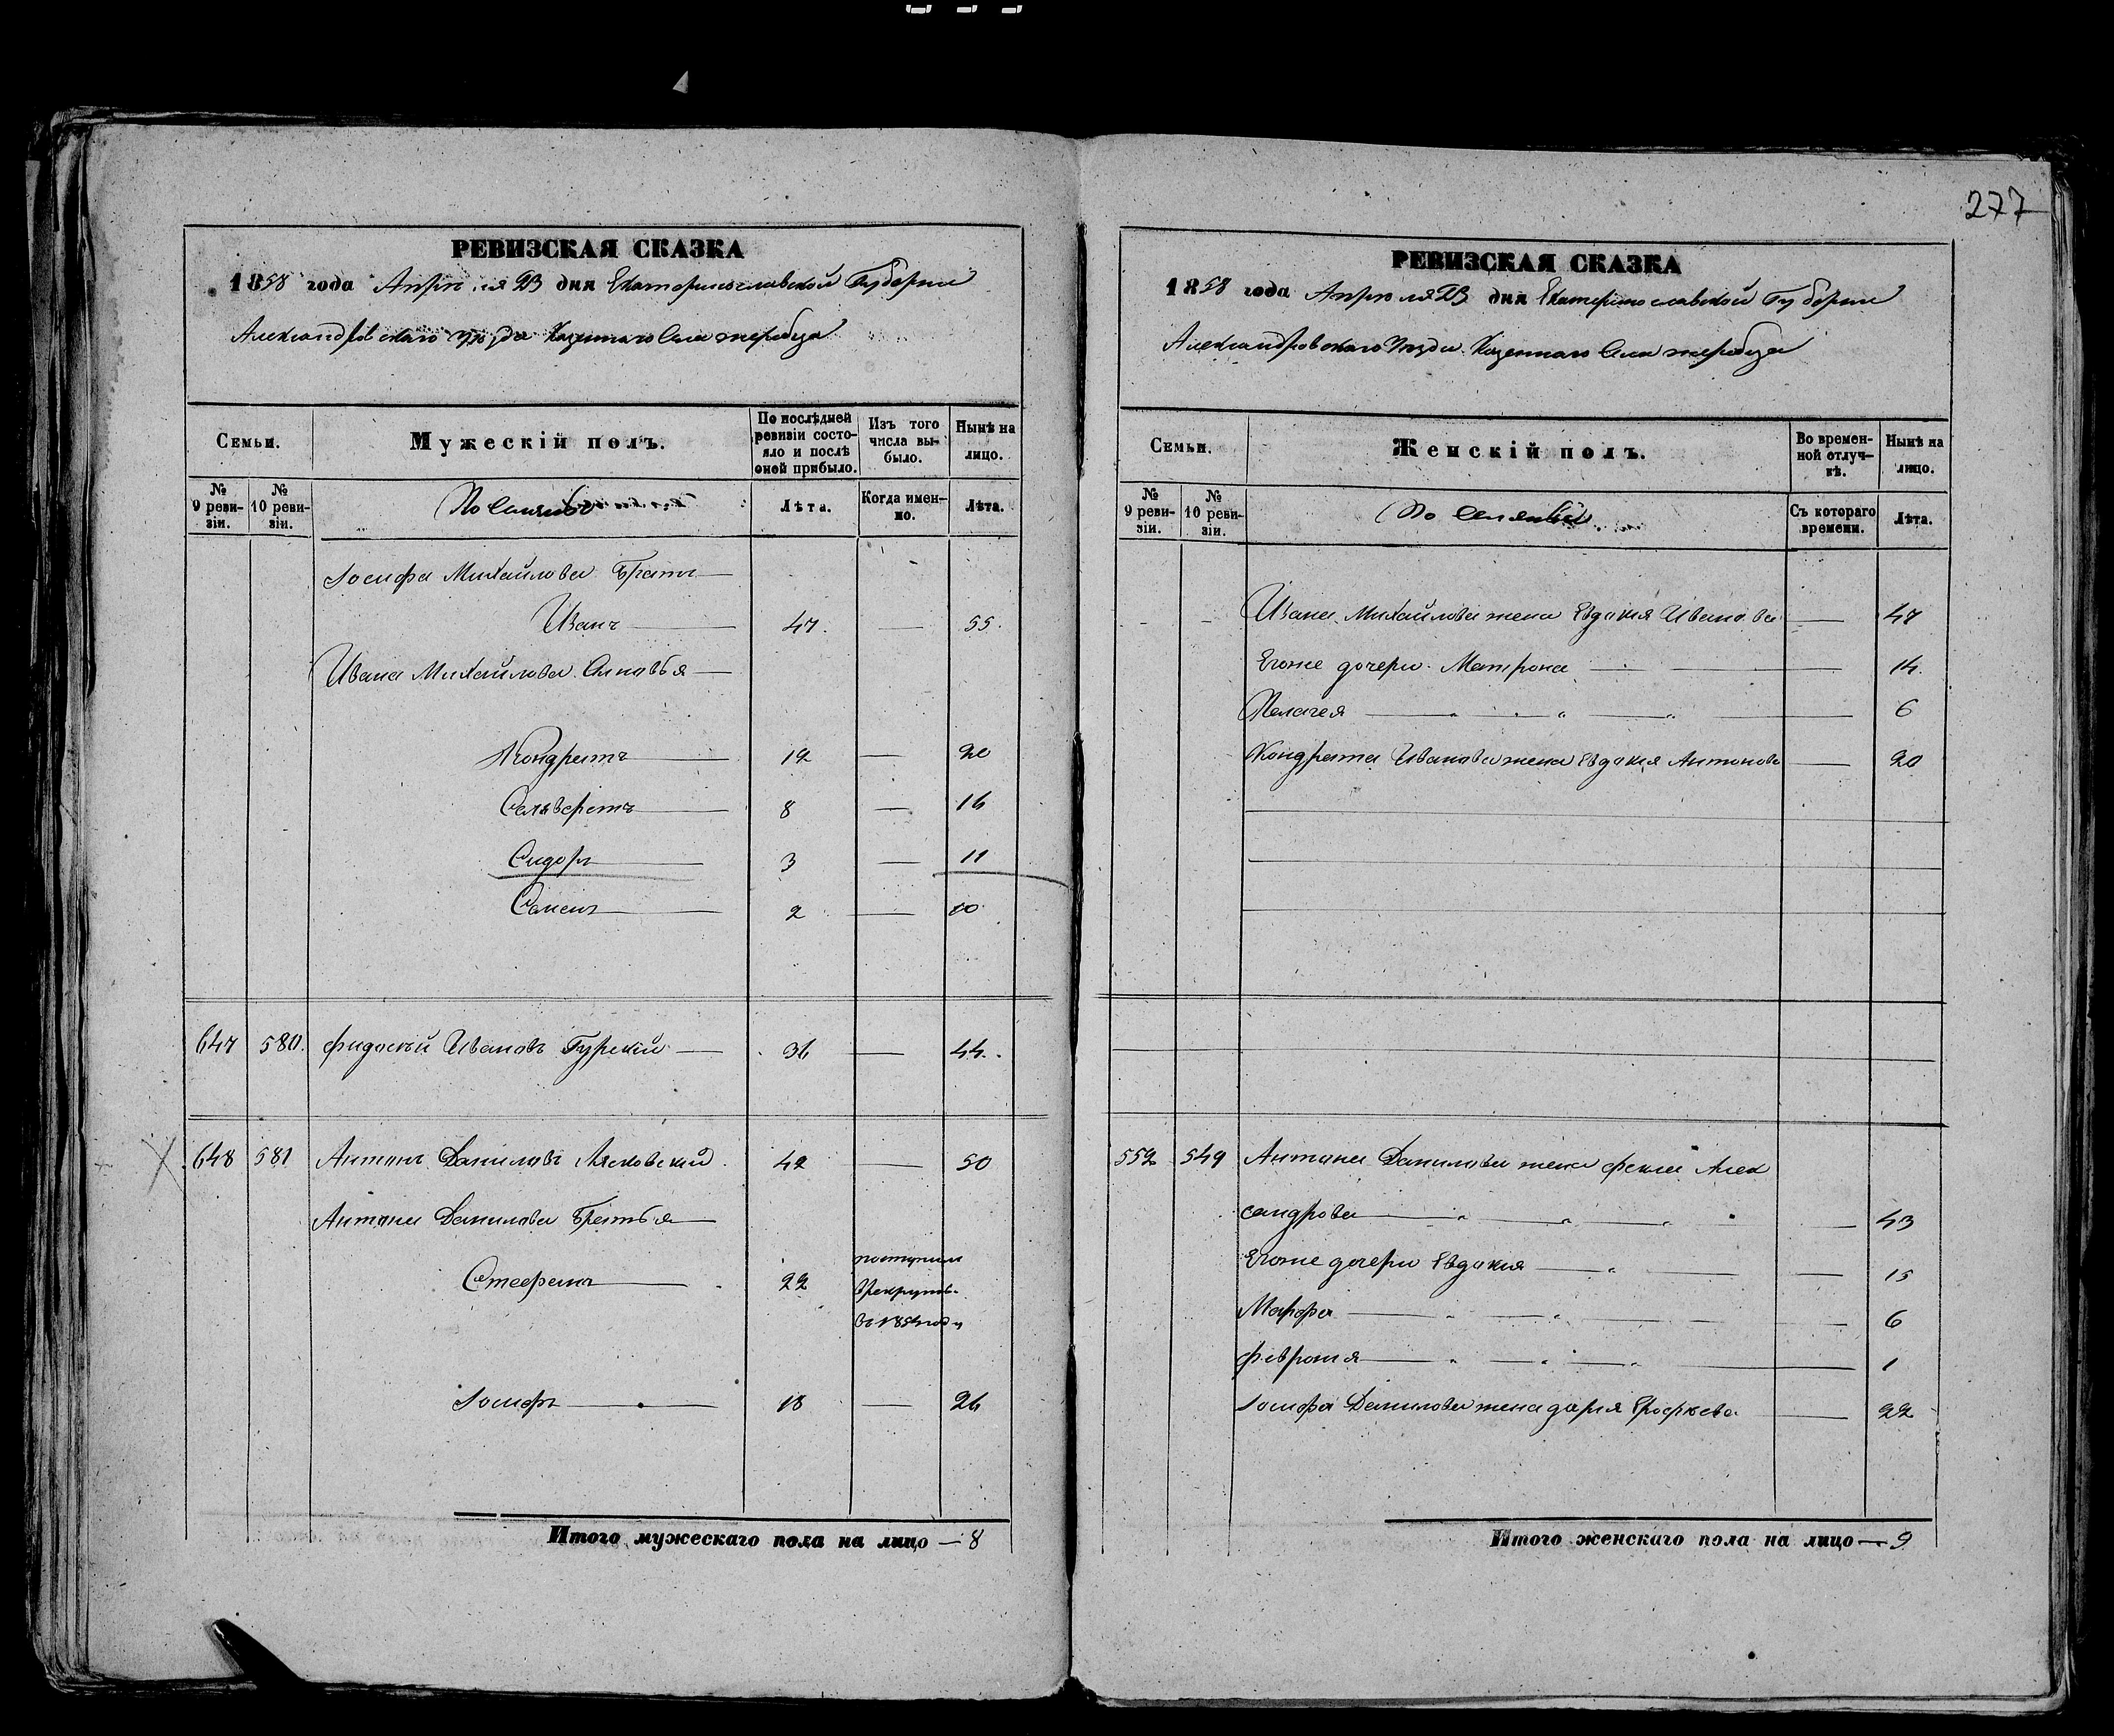 277
РЕВИЗСКАЯ СКАЗКА
1858 года Апреля 23 дня Екатеринославской Губернии
Александровскаго уѣзда Казеннаго Села Жеребца
Семьи.
Мужескій полъ.
По послѣдней ревизіи состояло и послѣ оной прибыло.
Изъ того числа выбыло.
Нынѣ на лицо.
№ 9 ревизіи.
№ 10 ревизіи.
Лѣта.
Когда именно.
Лѣта.
Иосифа Михайлова Братъ
Иванъ — 47. — 55.
Ивана Михайлова Сыновья —
Кондратъ — 12 — 20
Сельверстъ — 8 — 16
Сидоръ — 3 — 11
Самсонъ — 2 — 10
647 580. Фидосѣй Ивановъ Гурскій — 36 — 44.
648 581 Антонъ Даниловъ Лясковскій 42 — 50
Антона Данилова Братья —
Стефанъ — 22 поступилъ
в рекруты
въ 1854 году
Иосифъ — 18 — 26
Итого мужескаго пола на лицо — 8
РЕВИЗСКАЯ СКАЗКА
1858 года Апреля 23 дня Екатеринославской Губернии
Александровскаго Уезда Казеннаго Села Жеребца
Семьи.
Женскій полъ.
Во временной отлучкѣ.
Нынѣ на лицо.
№ 9 ревизіи.
№ 10 ревизіи.
Съ котораго времени.
Лѣта.
Ивана Михайлова жена Евдокия Иванова — 47
Егоже дочери Матрона — 14.
Пелагея — 6
Кондрата Иванова жена Евдокия Антонова — 20
552 549 Антона Данилова жена Фекла Алек
сандрова — 43
Егоже дочери Евдокия — 15
Марфа — 6
Феврония — 1
Иосифа Данилова жена Дария Ерофеева — 22
Итого женскаго пола на лицо — 9